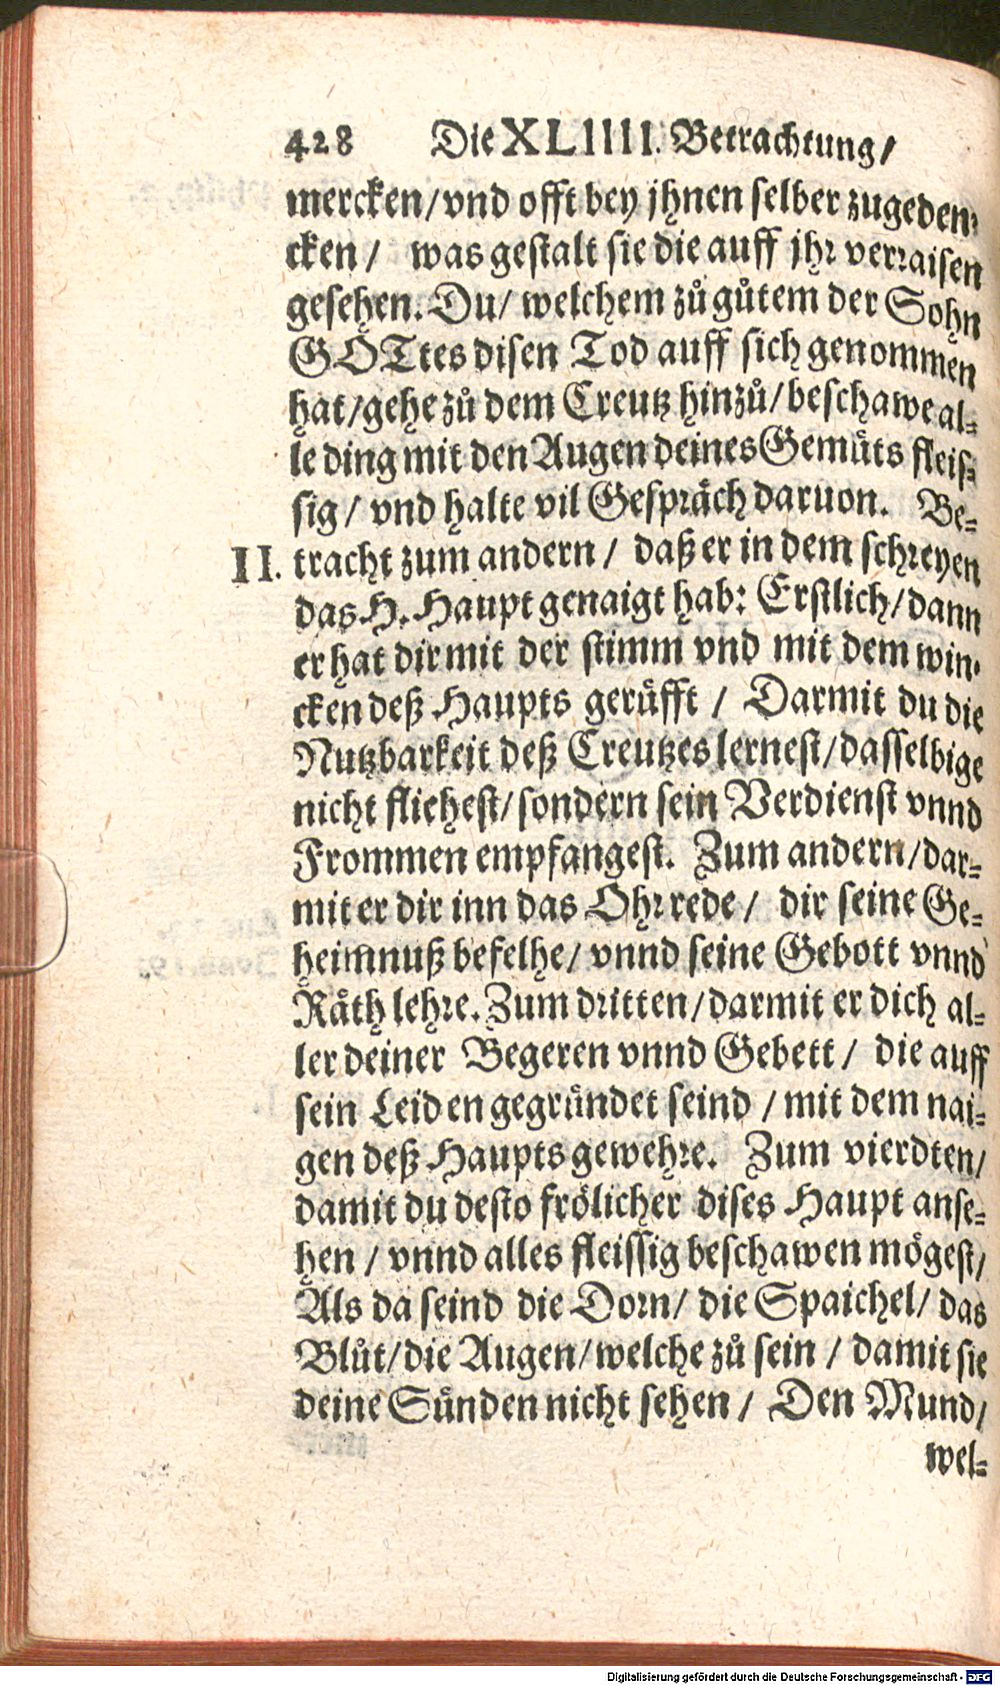 428 Die XLIIII. Betrachtung/
mercken/vnd offt bey jhnen selber zugeden-
cken/ was gestalt sie die auff jhr verraisen
gesehen. Du/ welchem zů gůtem der Sohn
GOTtes disen Tod auff sich genommen
hat/gehe zů dem Creutz hinzů/beschawe al-
le ding mit den Augen deines Gemüts fleis-
sig/ vnd halte vil Gespräch daruon. Be-
II. tracht zum andern/ daß er in dem schreyen
das H. Haupt genaigt hab: Erstlich/dann
er hat dir mit der stimm vnd mit dem win-
cken deß Haupts gerüfft/ Darmit du die
Nutzbarkeit deß Creutzes lernest/dasselbige
nicht fliehest/sondern sein Verdienst vnnd
Frommen empfangest. Zum andern/dar-
mit er dir inn das Ohr rede/ dir seine Ge-
heimnuß befelhe/ vnnd seine Gebott vnnd
Räth lehre. Zum dritten/darmit er dich al-
ler deiner Begeren vnnd Gebett/ die auff
sein Leiden gegründet seind/mit dem nai-
gen deß Haupts gewehre. Zum vierdten/
damit du desto frölicher dises Haupt anse-
hen/ vnnd alles fleissig beschawen mögest/
Als da seind die Dorn/ die Spaichel/ das
Blůt/die Augen/welche zů sein/ damit sie
deine Sünden nicht sehen/ Den Mund/
wel-
Digitalisierung gefördert durch die Deutsche Forschungsgemeinschaft - DFG